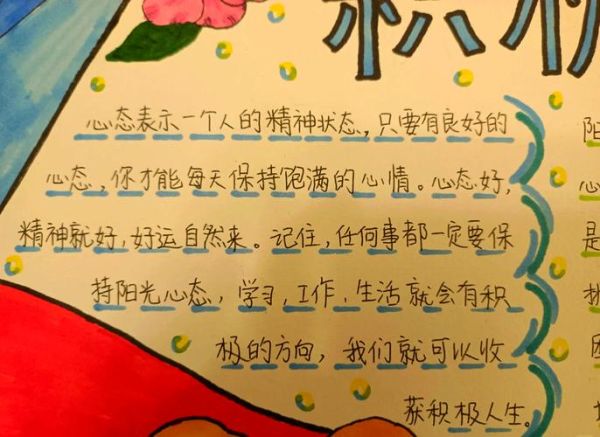 积极
心态表示一个人的精神状态，只要有良好的
心态，你才能每天保持饱满的心情。心态好，
精神就好，好运自然来。记住，任何事都一定要保
持阳光心态，学习，工作、生活就会有积
极的方向，我们就可以收
获积极人生。
阳
心
是